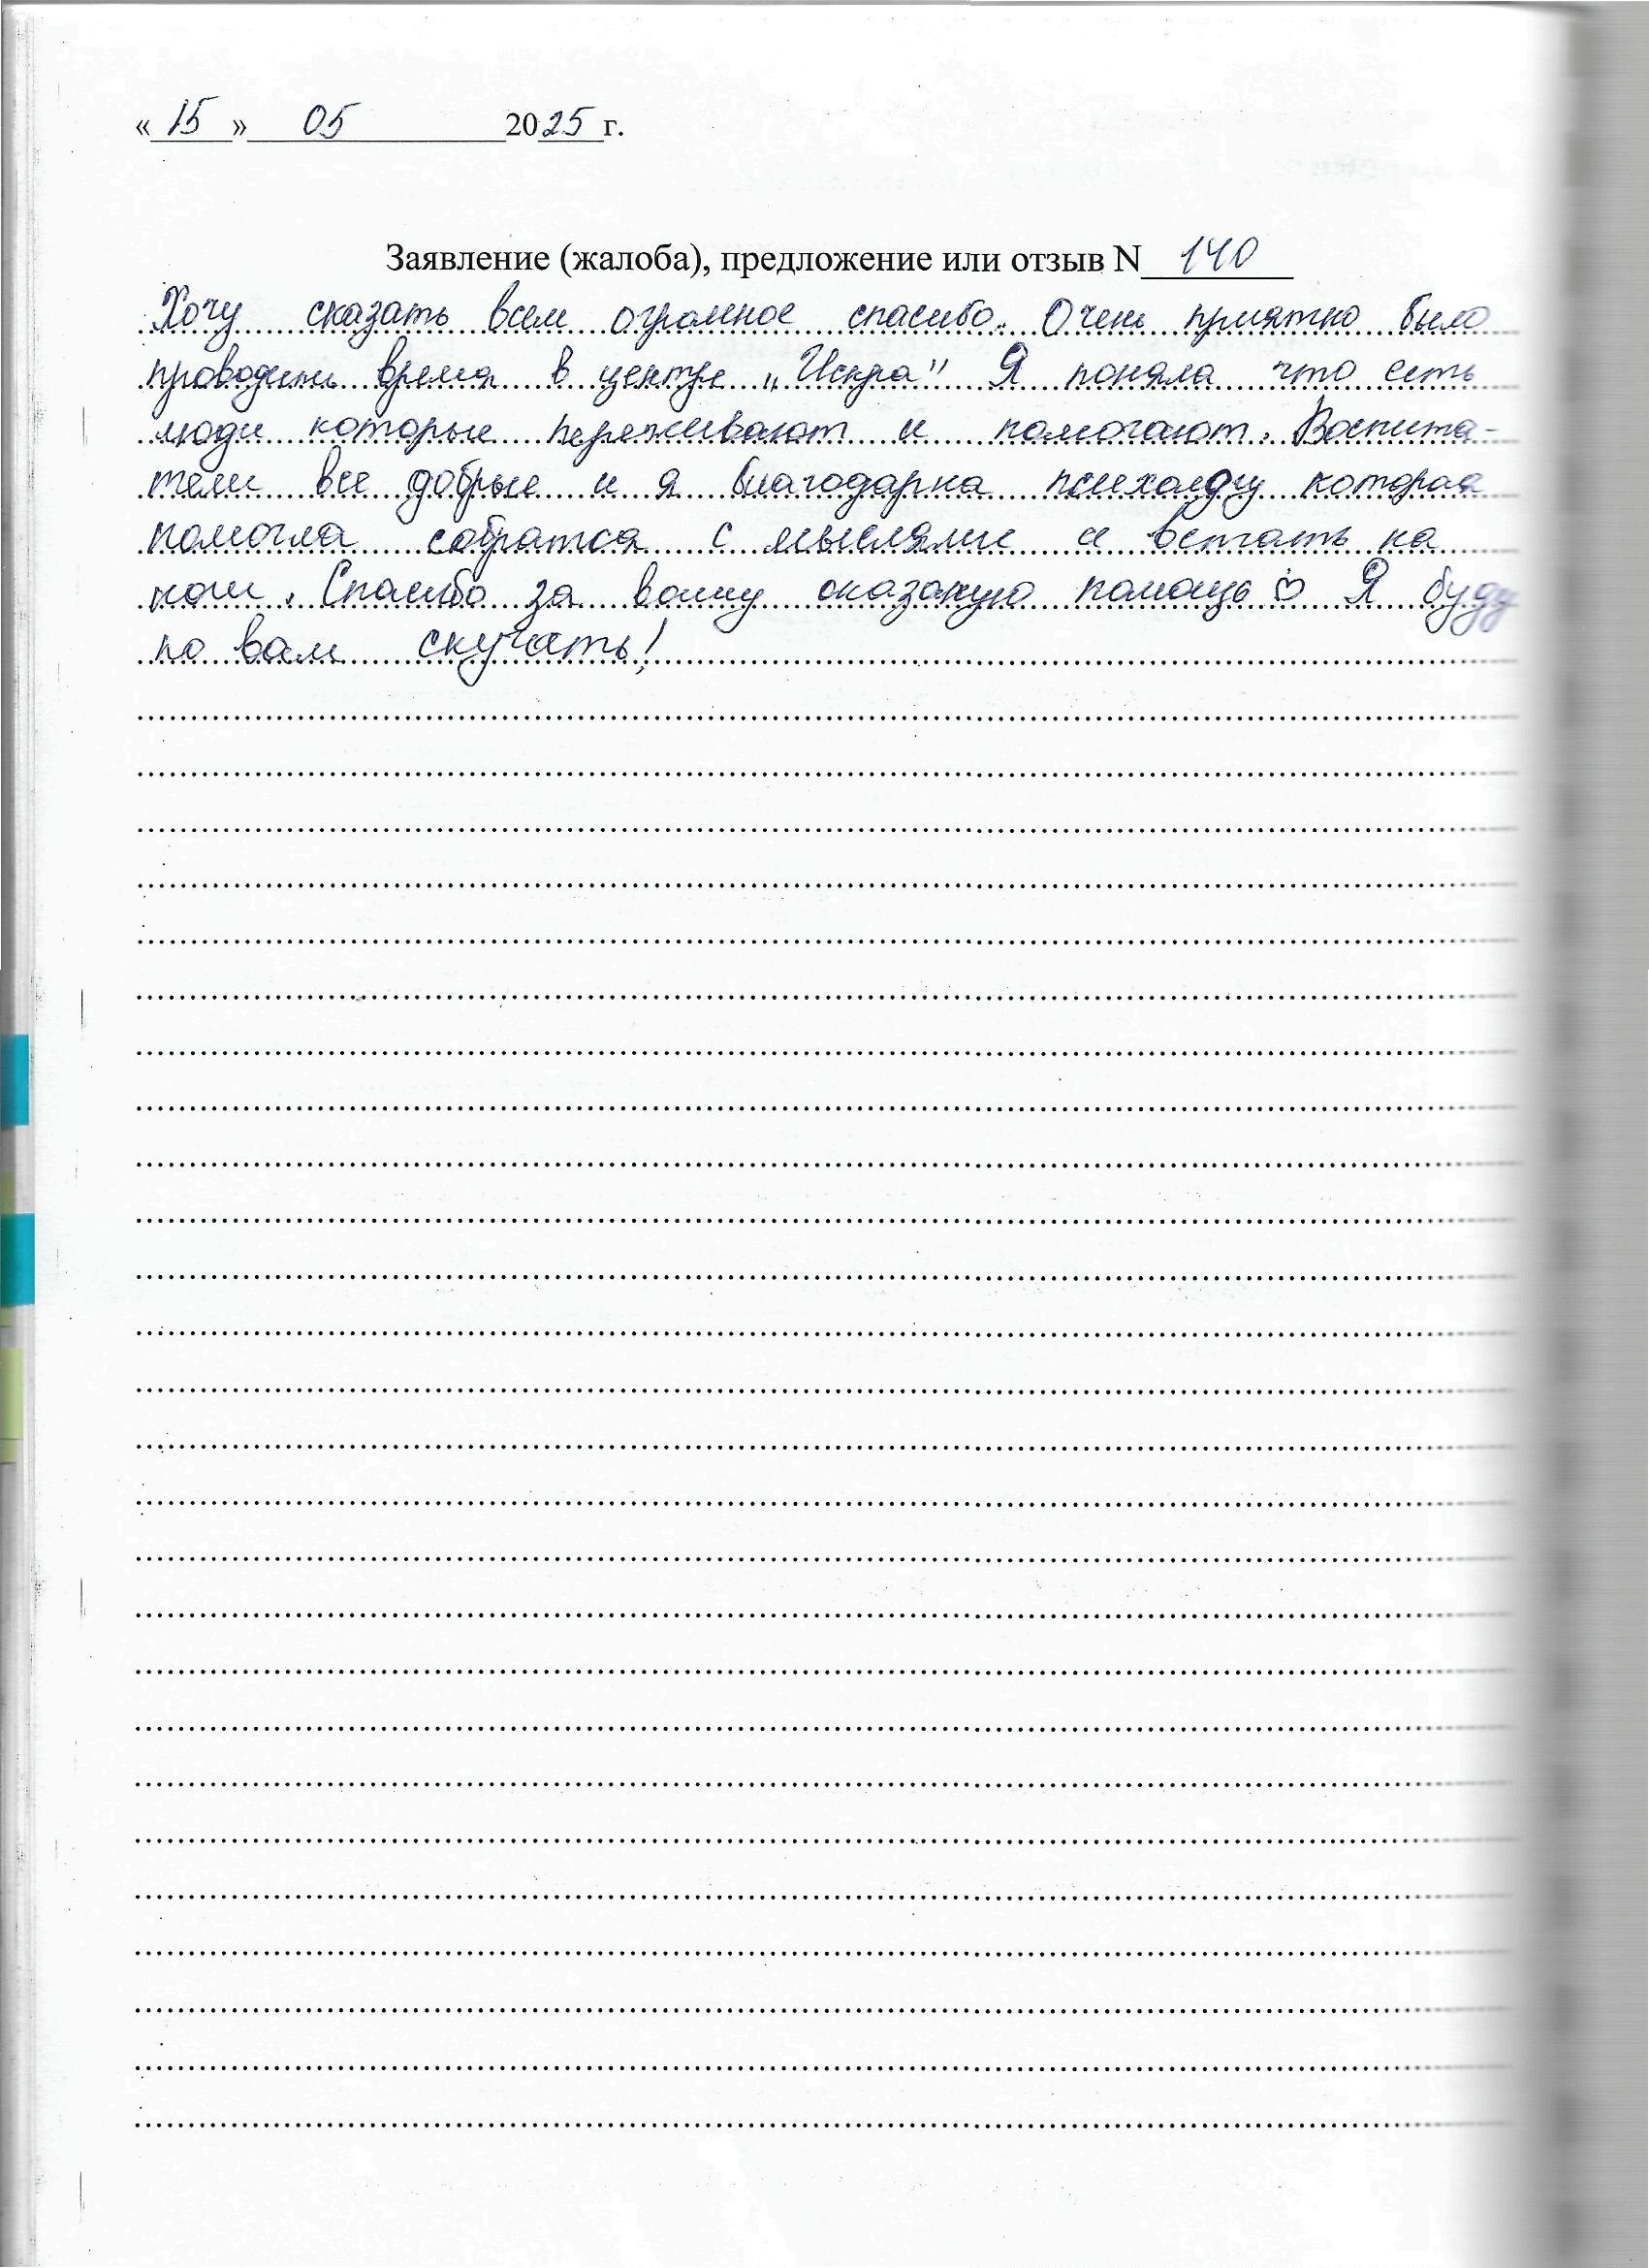 «15» 05 2025 г.
Заявление (жалоба), предложение или отзыв N 140
Хочу сказать всем огромное спасибо. Очень приятно было
проводить время в центре „Искра" Я поняла что есть
люди которые переживают и помогают. Воспита-
тели все добрые и я благодарна психологу которая
помогла собратся с мыслями и встать на
ноги. Спасибо за вашу оказаную помощь ♡ Я буду
по вам скучать!